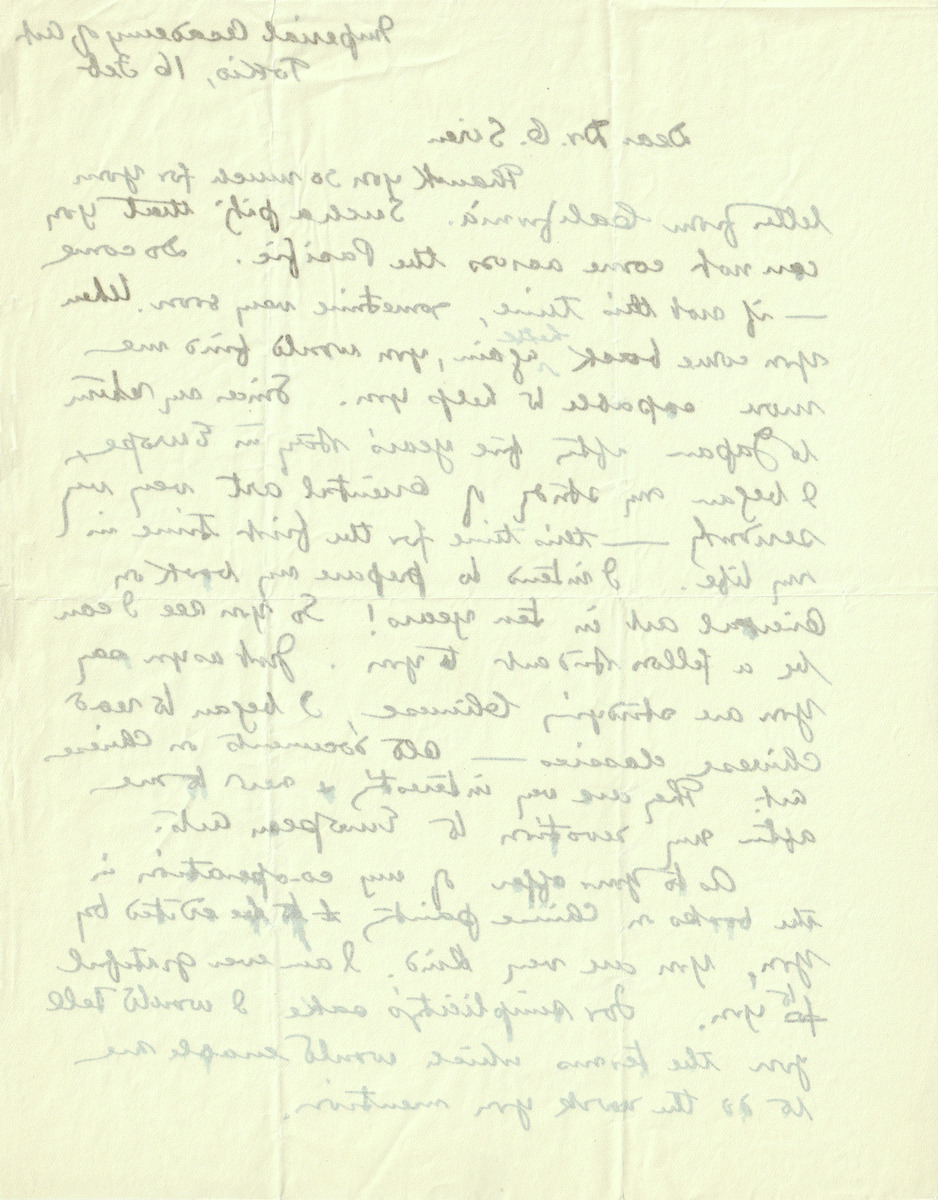 Imperial Academy of Art
Tokio, 16 Feb
Dear Dr. O. Siren
Thank you so much for your
letter from California. Such a pity that you
can not come across the Pacific. Do come
— if not this time, sometime very soon. When
you come back here again, you would find me
more capable to help you. Since my return
to Japan after five years' stay in Europe,
I began my study of Oriental art very
seriously — this time for the first time in
my life. I intend to prepare my book on
Oriental art in ten years! So you see I can
be a fellow student to you. Just as you say
you are studying Chinese, I began to read
Chinese classics — old documents on Chinese
art. They are very interesting & new to me
after my devotion to European arts.
As to your offer of my co-operation in
the books on Chinese painting to be edited by
you, you are very kind. I am ever grateful
to you. For simplicity's sake I would tell
you the terms which would enable me
to do the work you mention.